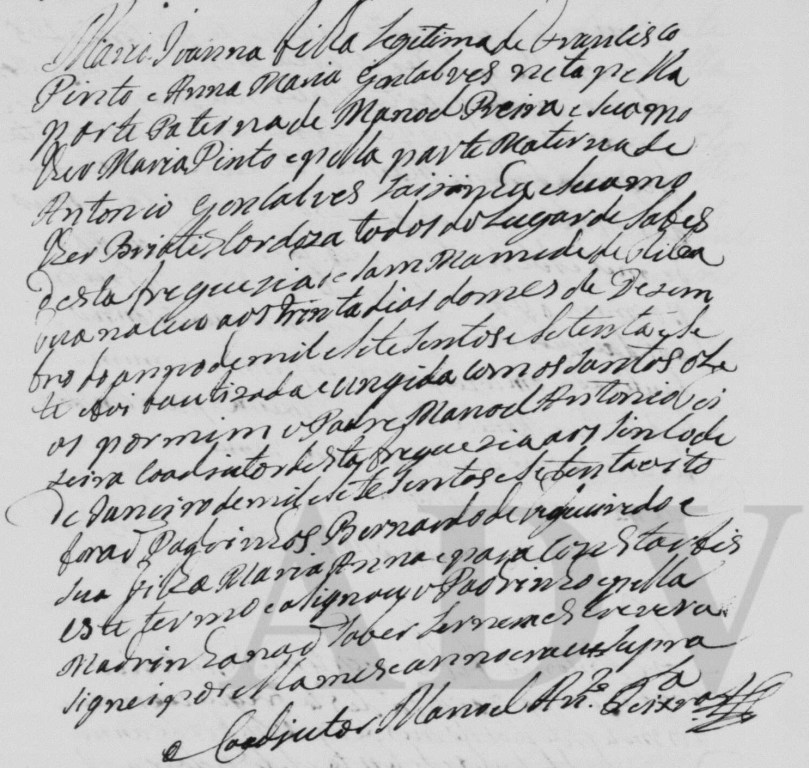 Maria Joanna filha Legitima de Francisco
Pinto e Anna Maria Gonsalves neta pella
parte Paterna de Manoel Preira e sua mo
lher Maria Pinto e pella parte Materna de
Antonio Gonsalves e sua mo
lher Briatis Cordoza todos do Lugar de
desta freguezia de Sam Mamede de Riba
tua naceu aos trinta dias do mes de Dezem
bro do anno de mil e sete sentos e setenta e se
te e foi bautizada e ungida com os santos ole
os por mim o Padre Manoel Antonio
Coadjutor desta freguezia aos sinco de
de Janeiro de mil e sete sentos e setenta e oito
forão Padrinhos Bernardo de Figueiredo e
sua filha Maria Anna e para constar fis
este termo e asignou o Padrinho e pella
Madrinha não saber ler nem escrever a
signei por ella mes e anno era ut supra
o Coadjutor Manoel Antº
ADV